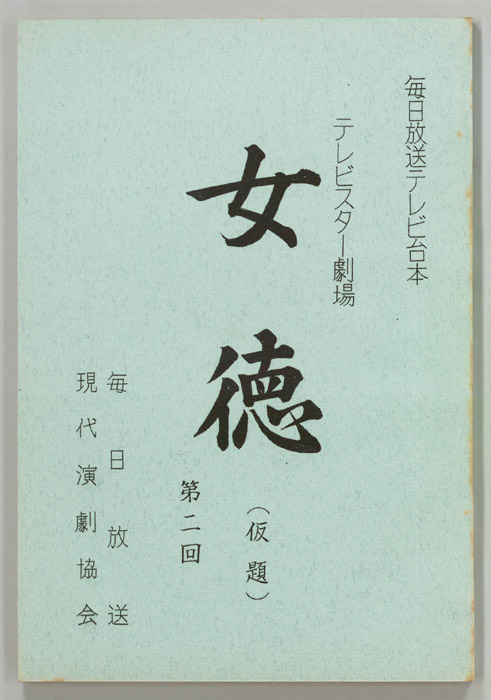 毎日放送テレビ台本
テレビスター劇場
女徳
(仮題)
第二回
毎日放送
現代演劇協会